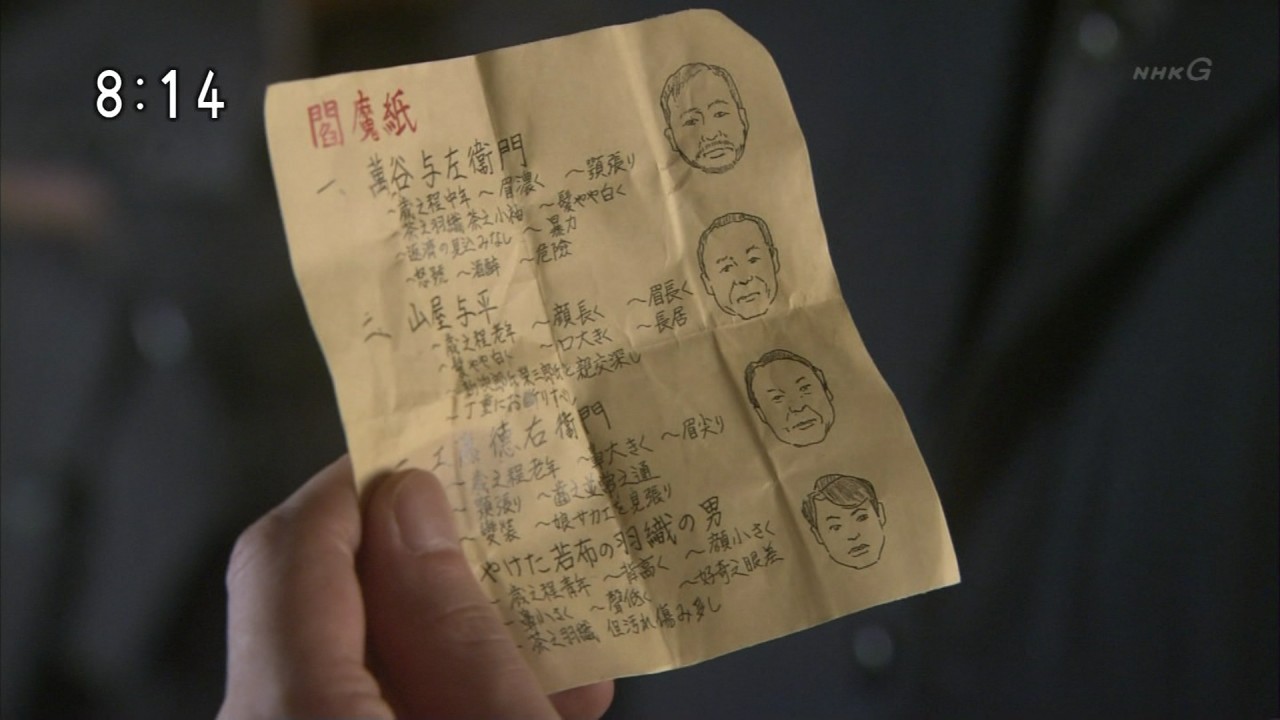 8:14
NHK G
閻魔紙
一、萬谷与左衛門
～歳之程中年 ～眉濃く ～顎張り
茶之羽織茶之小袖 ～髪やや白く
～返済の見込みなし ～暴力
～怒髭 ～酒酔 ～危険
二、山屋与平
～歳之程老年 ～顔長く ～眉長く
～髪やや白く ～口大きく ～長居
と親交深し
～丁重にお断りすべし
徳右衛門
～歳之程老年 大きく ～眉尖り
～顎張り ～歯之並
～変装 ～娘サカエを見張り
やけた若布の羽織の男
～歳之程青年 ～背高く ～顔小さく
小さく ～聲低く ～好奇之眼差
～茶之羽織、但汚れ傷み多し